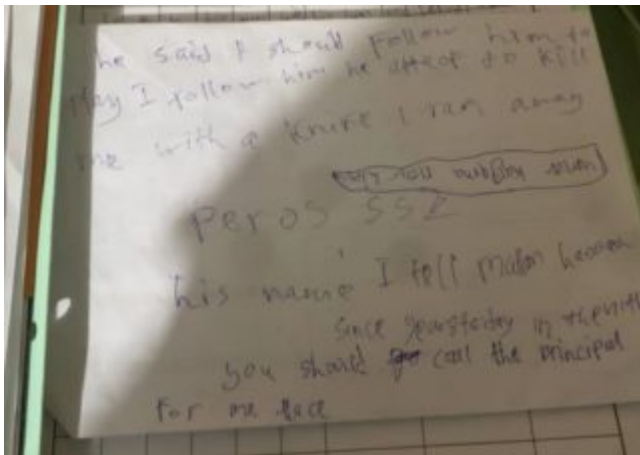 he said I should follow him to
I follow him he attect to kill
me with a knife I ran away
Peros SS2
his name I tell
since yearsteday in the
you should call the principal
For me